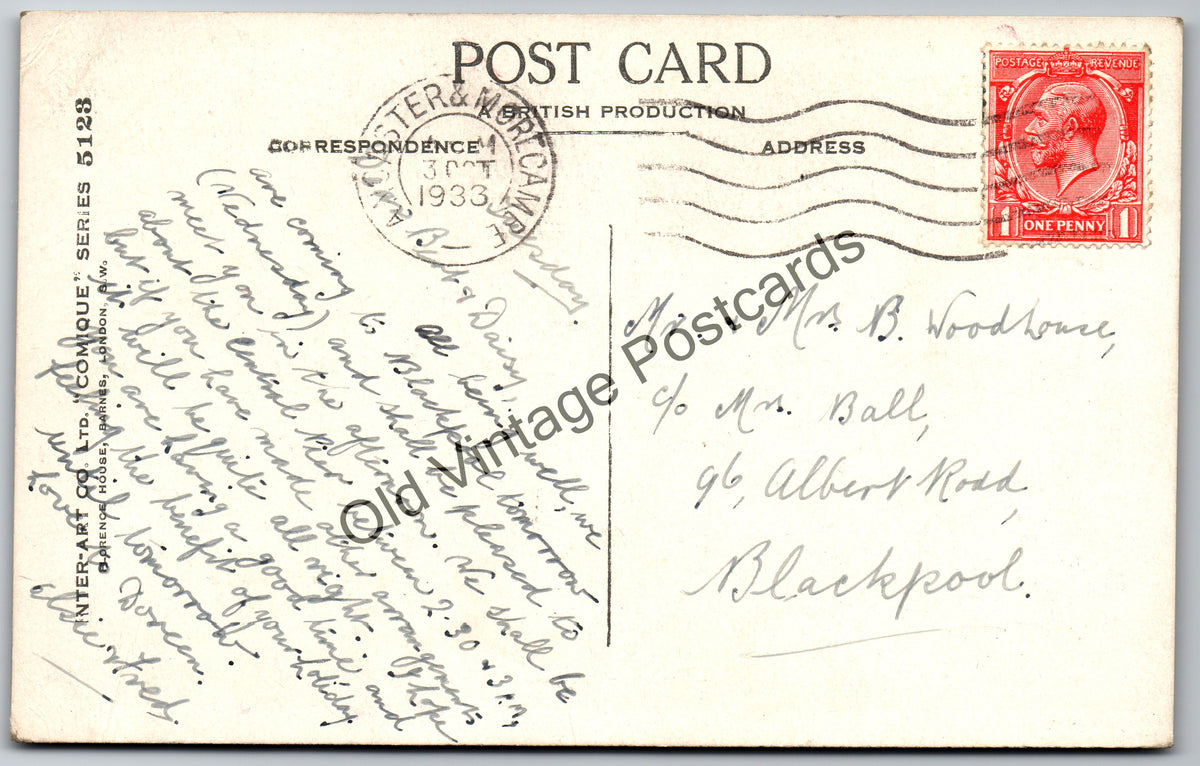 POST CARD
A BRITISH PRODUCTION
CORRESPONDENCE
ADDRESS
POSTAGE REVENUE
1 ONE PENNY 1
LANCASTER & MORECAMBE
3 OCT
1933
INTER-ART CO. LTD. "COMIQUE" SERIES 5123
FLORENCE HOUSE, BARNES, LONDON, S.W.
Bert & Daisy,
All being well, we
are coming to Blackpool tomorrow
(Wednesday) and shall be pleased to
meet you in the afternoon. We shall be
about the Central Pier between 2.30 & 3 p.m,
but if you have made other arrangements
it will be quite all right. Hope
you are having a good time and
feeling the benefit of your holiday
tomorrow.
Love Doreen.
Elsie & Fred.
Mr. & Mrs B. Woodhouse,
c/o Mrs. Ball,
96, Albert Road,
Blackpool.
Old Vintage Postcards